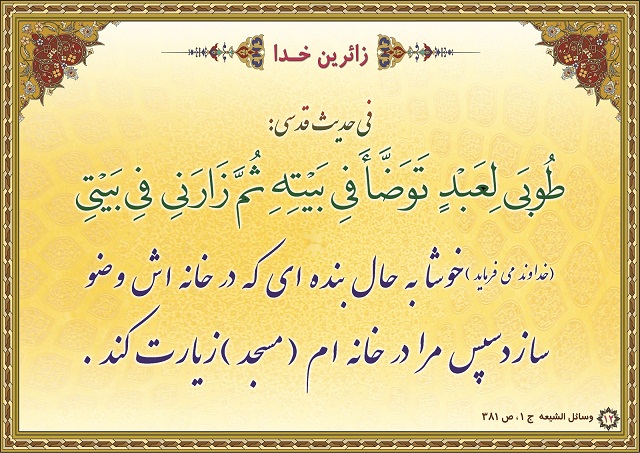 زائرین خـدا
فی حدیث قدسی:
طُوبَی لِعَبْدٍ تَوَضَّأَ فِی بَیْتِهِ ثُمَّ زَارَنِی فِی بَیْتِی
(خداوند می فرماید) خوشا به حال بنده ای که در خانه اش وضو
سازد سپس مرا در خانه ام (مسجد) زیارت کند .
۱۲ وسائل الشیعه ج ۱، ص ۳۸۱